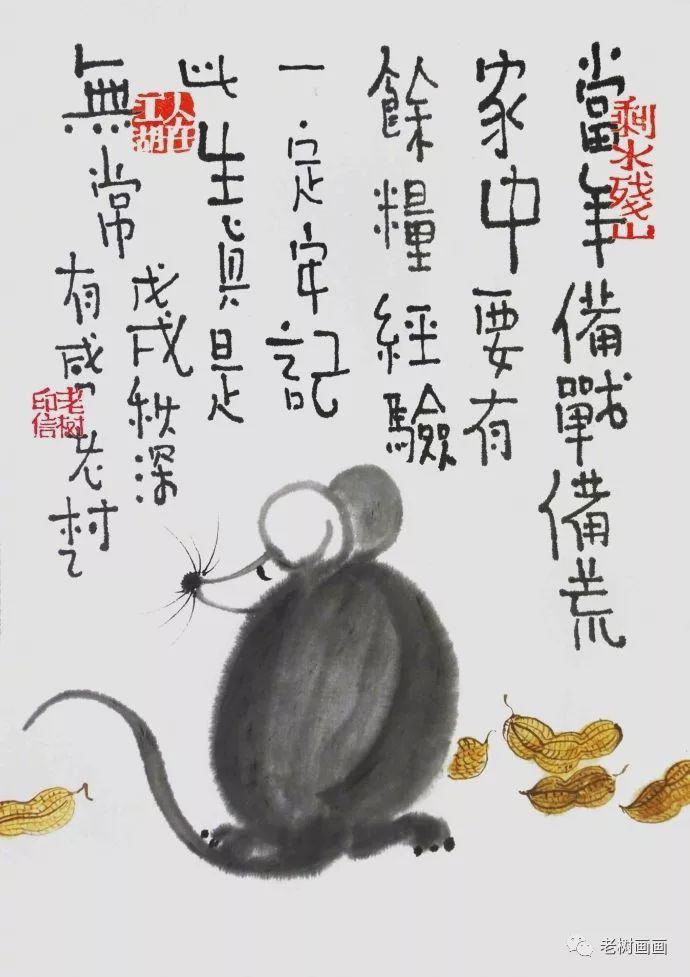 當年備戰備荒
家中要有
餘糧經驗
一定牢記
此生真是
無常
戊戌秋深
有感 老樹
剩水殘山
人在江湖
老树印信
老树画画